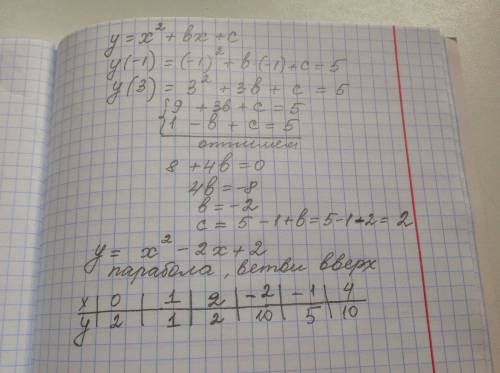 y = x² + bx + c
y(-1) = (-1)² + b·(-1) + c = 5
y(3) = 3² + 3b + c = 5
{9 + 3b + c = 5
{1 - b + c = 5
отнимем
8 + 4b = 0
4b = -8
b = -2
c = 5 - 1 + b = 5-1-2 = 2
y = x² - 2x + 2
парабола, ветви вверх
x | 0 | 1 | 2 | -2 | -1 | 4
y | 2 | 1 | 2 | 10 | 5 | 10